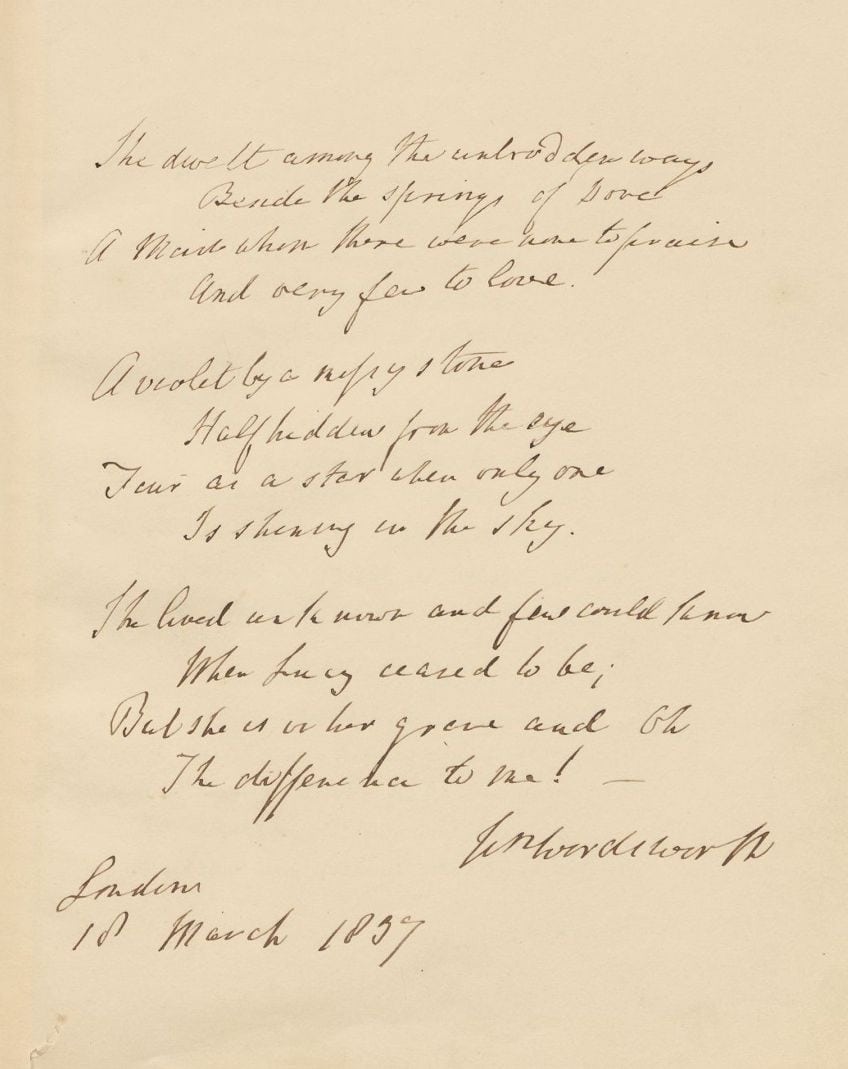 She dwelt among the untrodden ways
Beside the springs of Dove
A Maid whom there were none to praise
And very few to love.
A violet by a mossy stone
Half hidden from the eye
Fair as a star when only one
Is shining in the sky.
She lived unknown and few could know
When Lucy ceased to be;
But she is in her grave and Oh
The difference to me! —
Wm Wordsworth
London
18 March 1837